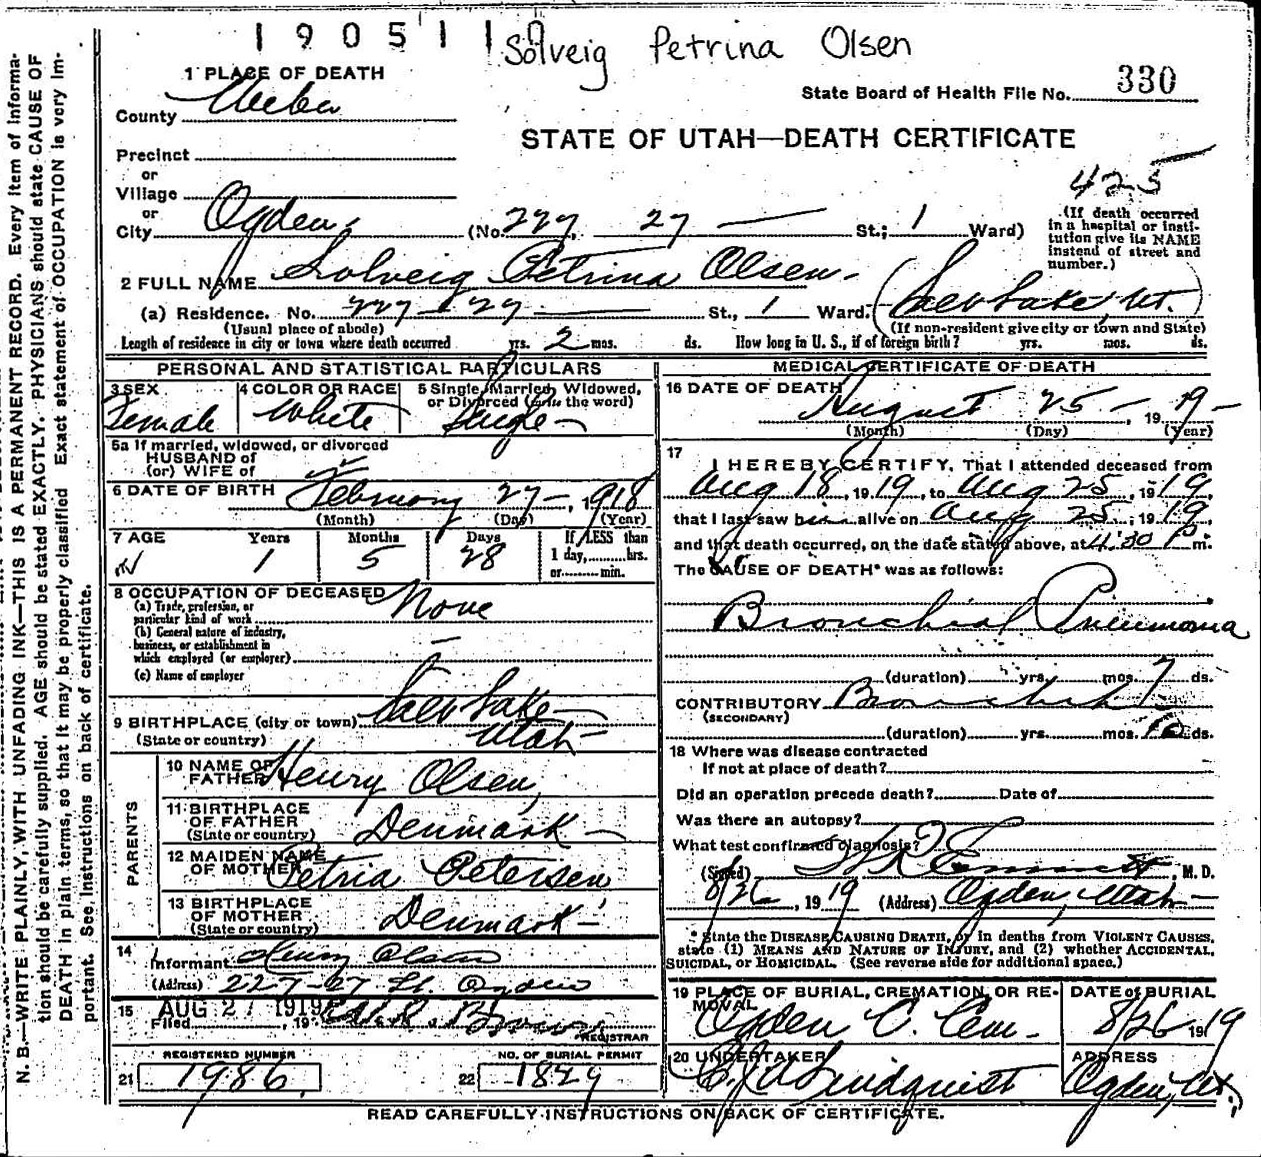 190511 Solveig Petrina Olsen
1 PLACE OF DEATH
State Board of Health File No. 330
County Weber
STATE OF UTAH—DEATH CERTIFICATE
Precinct
or
Village
or
425
City Ogden, (No. 227, 27 — St.; 1 Ward)
(If death occurred in a hospital or institution give its NAME instead of street and number.)
2 FULL NAME Solveig Petrina Olsen
(a) Residence. No. 227 - 27 — St., 1 Ward. ( Lake, Ut.)
(Usual place of abode) (If non-resident give city or town and State)
Length of residence in city or town where death occurred yrs. 2 mos. ds. How long in U. S., if of foreign birth? yrs. mos. ds.
PERSONAL AND STATISTICAL PARTICULARS
3 SEX Female
4 COLOR OR RACE White
5 Single, Married, Widowed, or Divorced (write the word) Single
5a If married, widowed, or divorced
HUSBAND of
(or) WIFE of
6 DATE OF BIRTH February 27 —, 1918
(Month) (Day) (Year)
7 AGE Years 1 Months 5 Days 28 If LESS than
1 day,......hrs.
or......min.
8 OCCUPATION OF DECEASED None
(a) Trade, profession, or
particular kind of work
(b) General nature of industry,
business, or establishment in
which employed (or employer)
(c) Name of employer
9 BIRTHPLACE (city or town) Lake
(State or country) Utah
PARENTS
10 NAME OF FATHER Henry Olsen,
11 BIRTHPLACE OF FATHER (State or country) Denmark
12 MAIDEN NAME OF MOTHER Petria Petersen
13 BIRTHPLACE OF MOTHER (State or country) Denmark
14 Informant Henry Olsen
(Address) 227-27 St. Ogden
15 Filed AUG 27 1919, 19 Brown
REGISTRAR
REGISTERED NUMBER
21 1986
NO. OF BURIAL PERMIT
22 1829
MEDICAL CERTIFICATE OF DEATH
16 DATE OF DEATH August 25 —, 1919
(Month) (Day) (Year)
17 I HEREBY CERTIFY, That I attended deceased from
Aug 18, 1919, to Aug 25, 1919,
that I last saw him alive on Aug 25, 1919,
and that death occurred, on the date stated above, at 4:30 P. m.
The CAUSE OF DEATH* was as follows:
Bronchial Pneumonia
(duration) yrs. mos. 7 ds.
CONTRIBUTORY Bronchitis
(SECONDARY)
(duration) yrs. mos. 10 ds.
18 Where was disease contracted
If not at place of death?
Did an operation precede death? Date of
Was there an autopsy?
What test confirmed diagnosis?
(Signed) Emmett, M. D.
8/26, 1919 (Address) Ogden, Utah
* State the DISEASE CAUSING DEATH, or in deaths from VIOLENT CAUSES,
state (1) MEANS AND NATURE OF INJURY, and (2) whether ACCIDENTAL,
SUICIDAL, or HOMICIDAL. (See reverse side for additional space.)
19 PLACE OF BURIAL, CREMATION, OR REMOVAL Ogden C. Cem.
DATE of BURIAL 8/26 1919
20 UNDERTAKER Lindquist
ADDRESS Ogden, Ut.
READ CAREFULLY INSTRUCTIONS ON BACK OF CERTIFICATE.
N. B.—WRITE PLAINLY, WITH UNFADING INK—THIS IS A PERMANENT RECORD. Every item of informa-
tion should be carefully supplied. AGE should be stated EXACTLY. PHYSICIANS should state CAUSE OF
DEATH in plain terms, so that it may be properly classified. Exact statement of OCCUPATION is very im-
portant. See instructions on back of certificate.